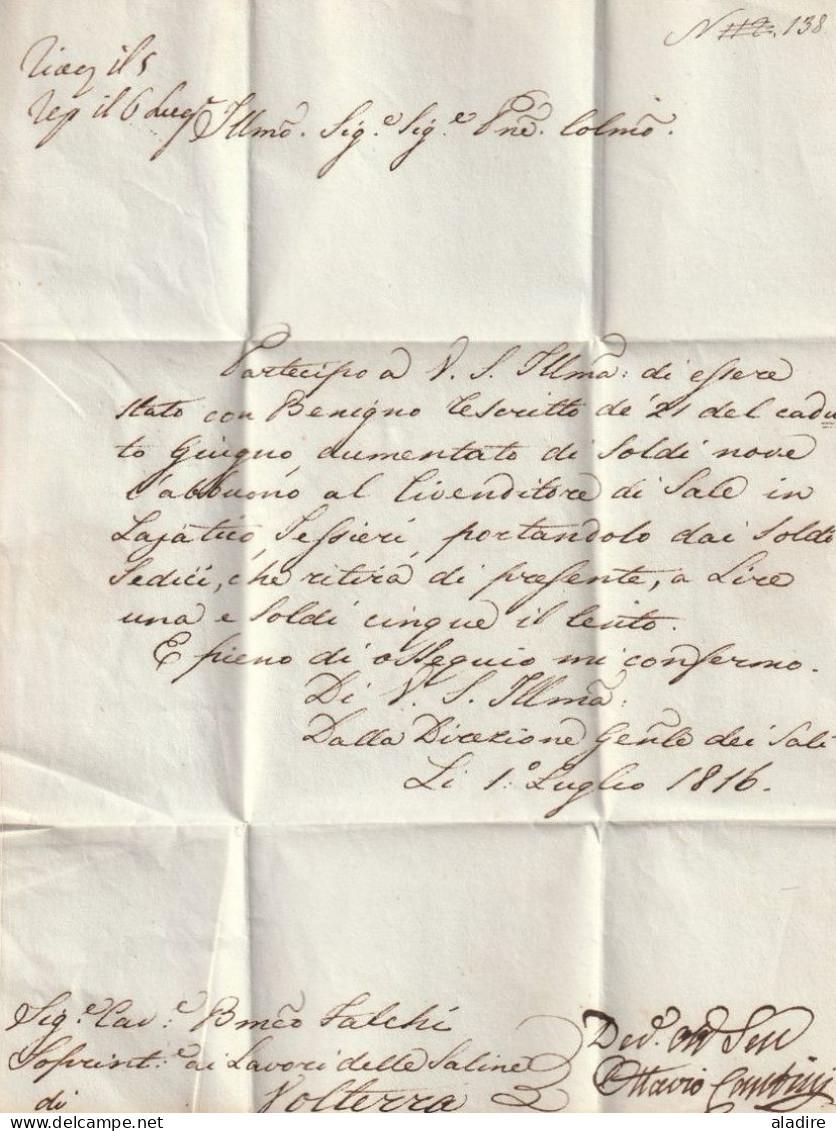 N 112. 138
il 5
il 6 Lug.
Illmo. Sig.e Sig.e Pne. Colmo.
Partecipo a V. S. Illma: di essere
stato con Benigno Rescritto de' 21 del cadu
to Giugno, aumentato di soldi nove
l'abbuono al Rivenditore di Sale in
Lajatico Tessieri, portandolo dai Soldi
Sedici, che ritira di presente, a Lire
una e Soldi cinque il Cento.
E pieno di ossequio mi confermo.
Di V. S. Illma:
Dalla Direzione Genle dei Sali
Li 1.o Luglio 1816.
Sig.e Cav.e Bmeo Falchi
Soprint.e ai Lavori delle Saline
di Volterra
Dev.o Obb Serv
Ottavio
www.delcampe.net
aladire